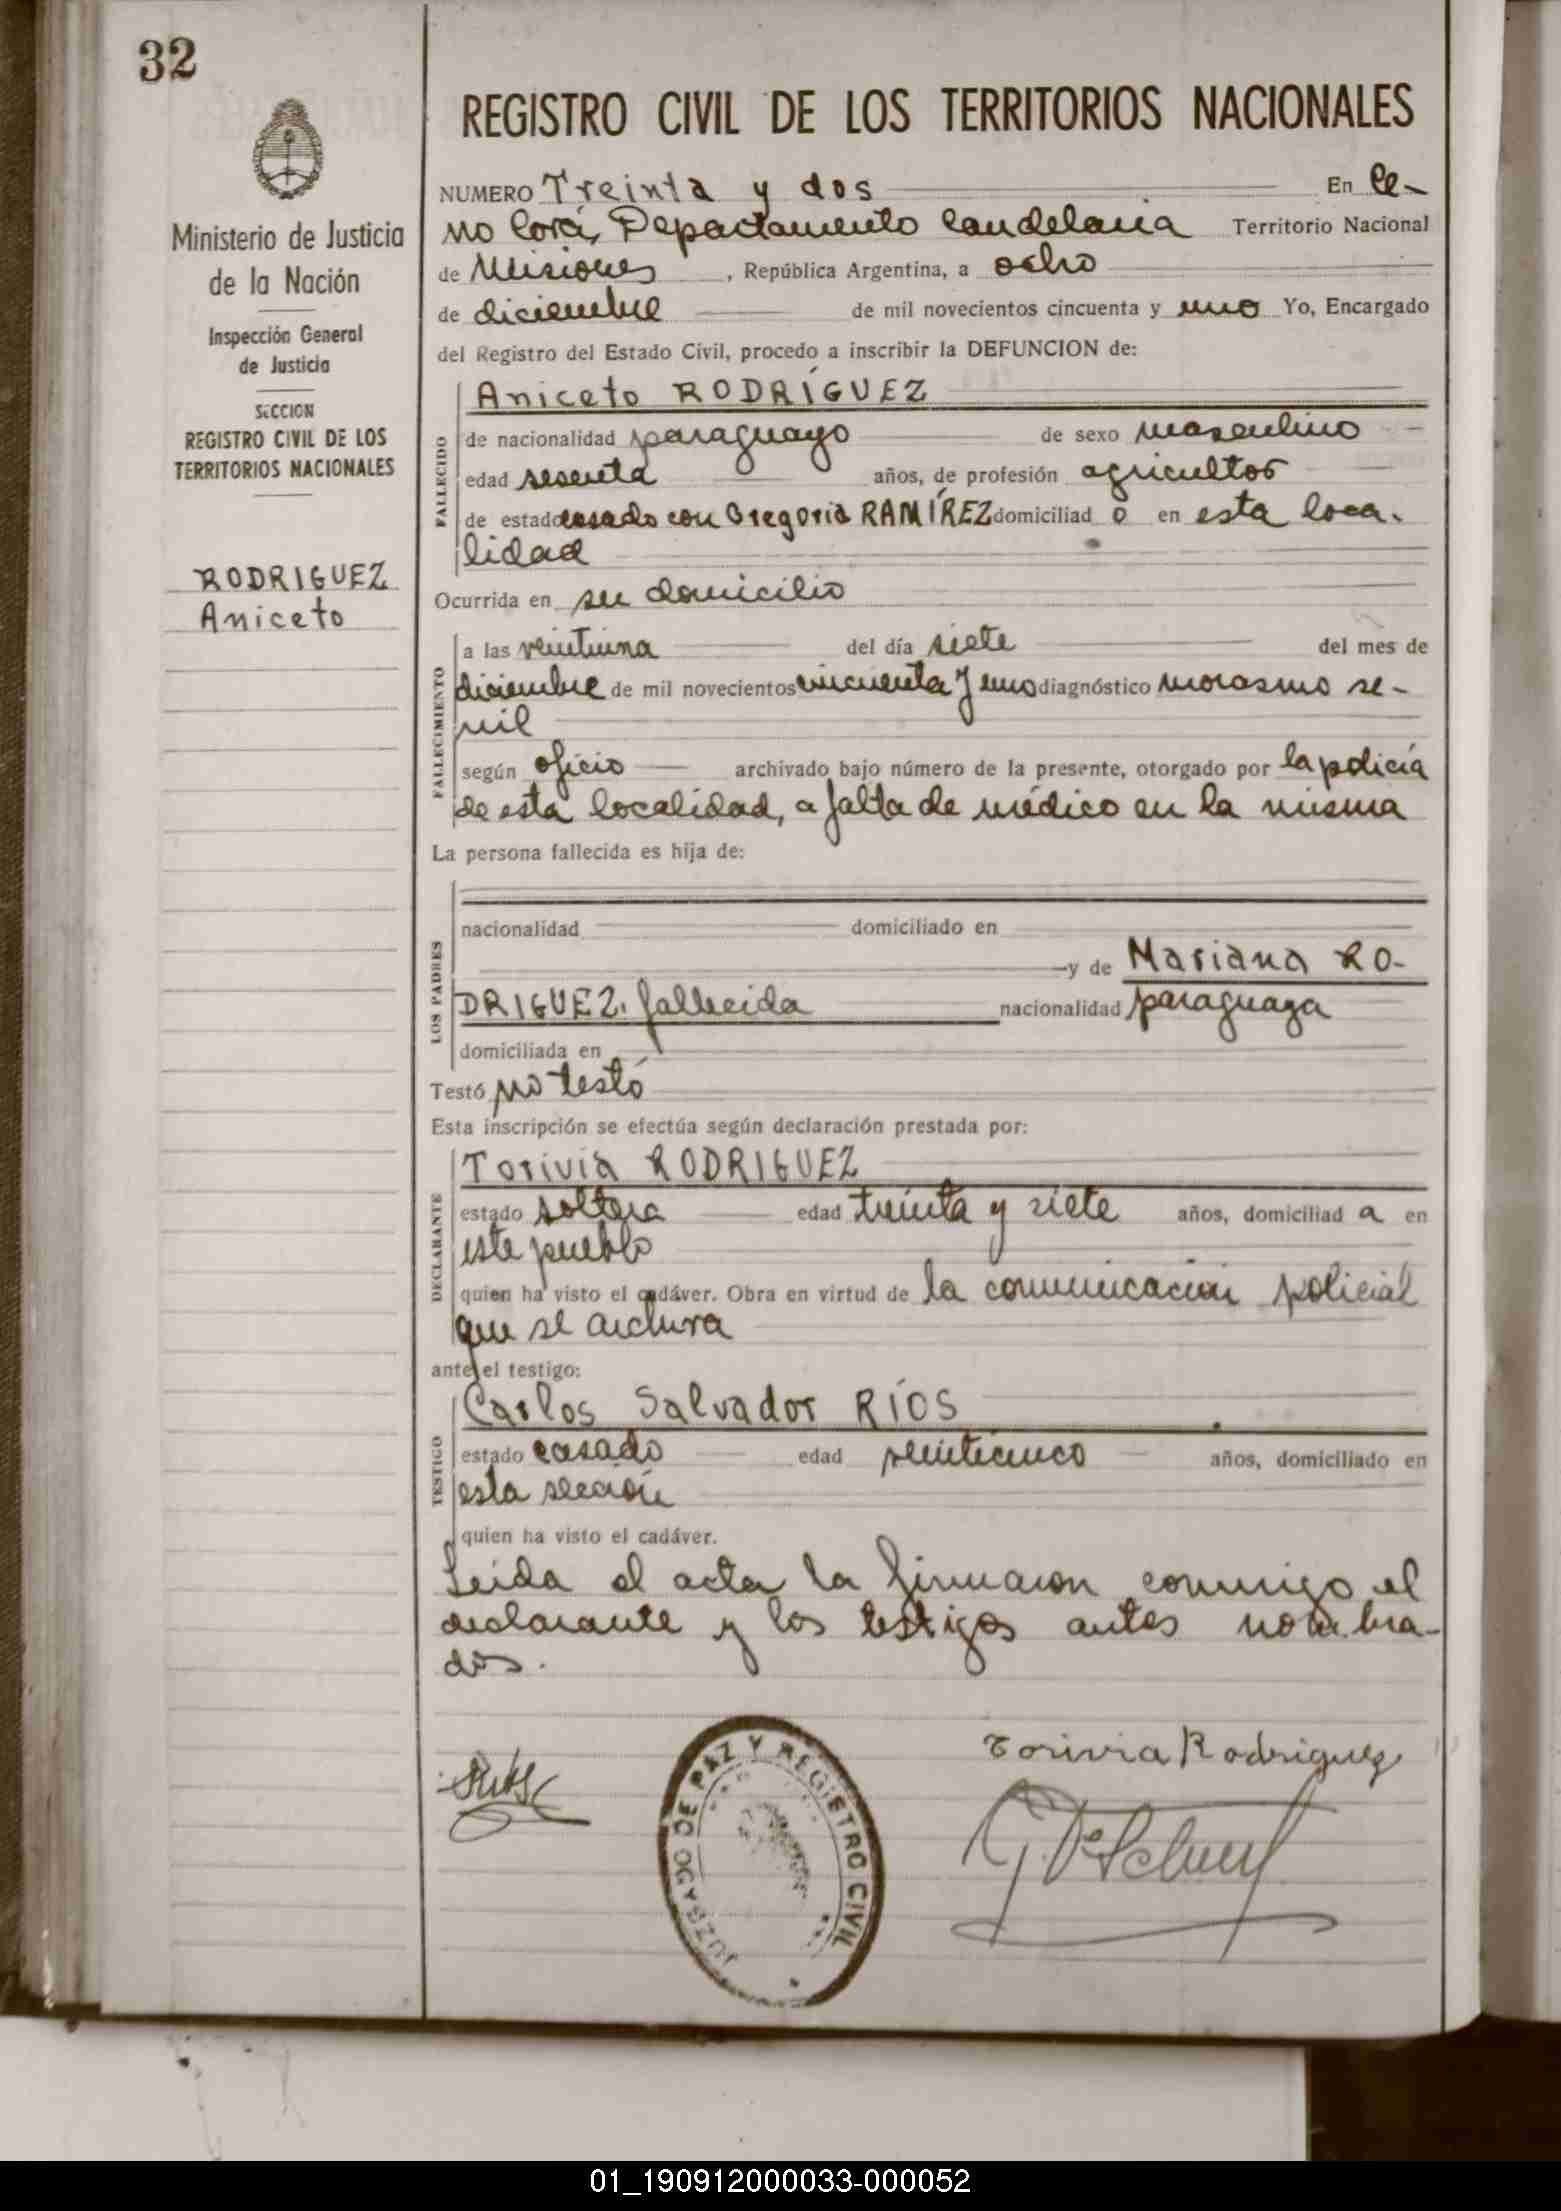 32
Ministerio de Justicia
de la Nación
Inspección General
de Justicia
SECCION
REGISTRO CIVIL DE LOS
TERRITORIOS NACIONALES
RODRIGUEZ
Aniceto
REGISTRO CIVIL DE LOS TERRITORIOS NACIONALES
NUMERO Treinta y dos En Ce-
rro Corá, Departamento Candelaria Territorio Nacional
de Misiones, República Argentina, a ocho
de diciembre de mil novecientos cincuenta y uno Yo, Encargado
del Registro del Estado Civil, procedo a inscribir la DEFUNCION de:
Aniceto RODRÍGUEZ
FALLECIDO
de nacionalidad paraguayo de sexo masculino
edad sesenta años, de profesión agricultor
de estado casado con Gregoria RAMÍREZ domiciliad o en esta loca-
lidad
Ocurrida en su domicilio
FALLECIMIENTO
a las veintiuna del día siete del mes de
diciembre de mil novecientos cincuenta y uno diagnóstico morasmo se-
nil
según oficio archivado bajo número de la presente, otorgado por la policía
de esta localidad, a falta de médico en la misma
La persona fallecida es hija de:
LOS PADRES
nacionalidad domiciliado en
y de Mariana RO-
DRIGUEZ, fallecida nacionalidad paraguaya
domiciliada en
Testó no testó
Esta inscripción se efectúa según declaración prestada por:
DECLARANTE
Torivia RODRIGUEZ
estado soltera edad treinta y siete años, domiciliad a en
este pueblo
quien ha visto el cadáver. Obra en virtud de la comunicación policial
que se archiva
ante el testigo:
TESTIGO
Carlos Salvador RÍOS
estado casado edad veinticinco años, domiciliado en
esta sección
quien ha visto el cadáver.
Leida el acta la firmaron conmigo el
declarante y los testigos antes nombra-
dos.
Torivia Rodriguez
JUZGADO DE PAZ Y REGISTRO CIVIL
01_190912000033-000052